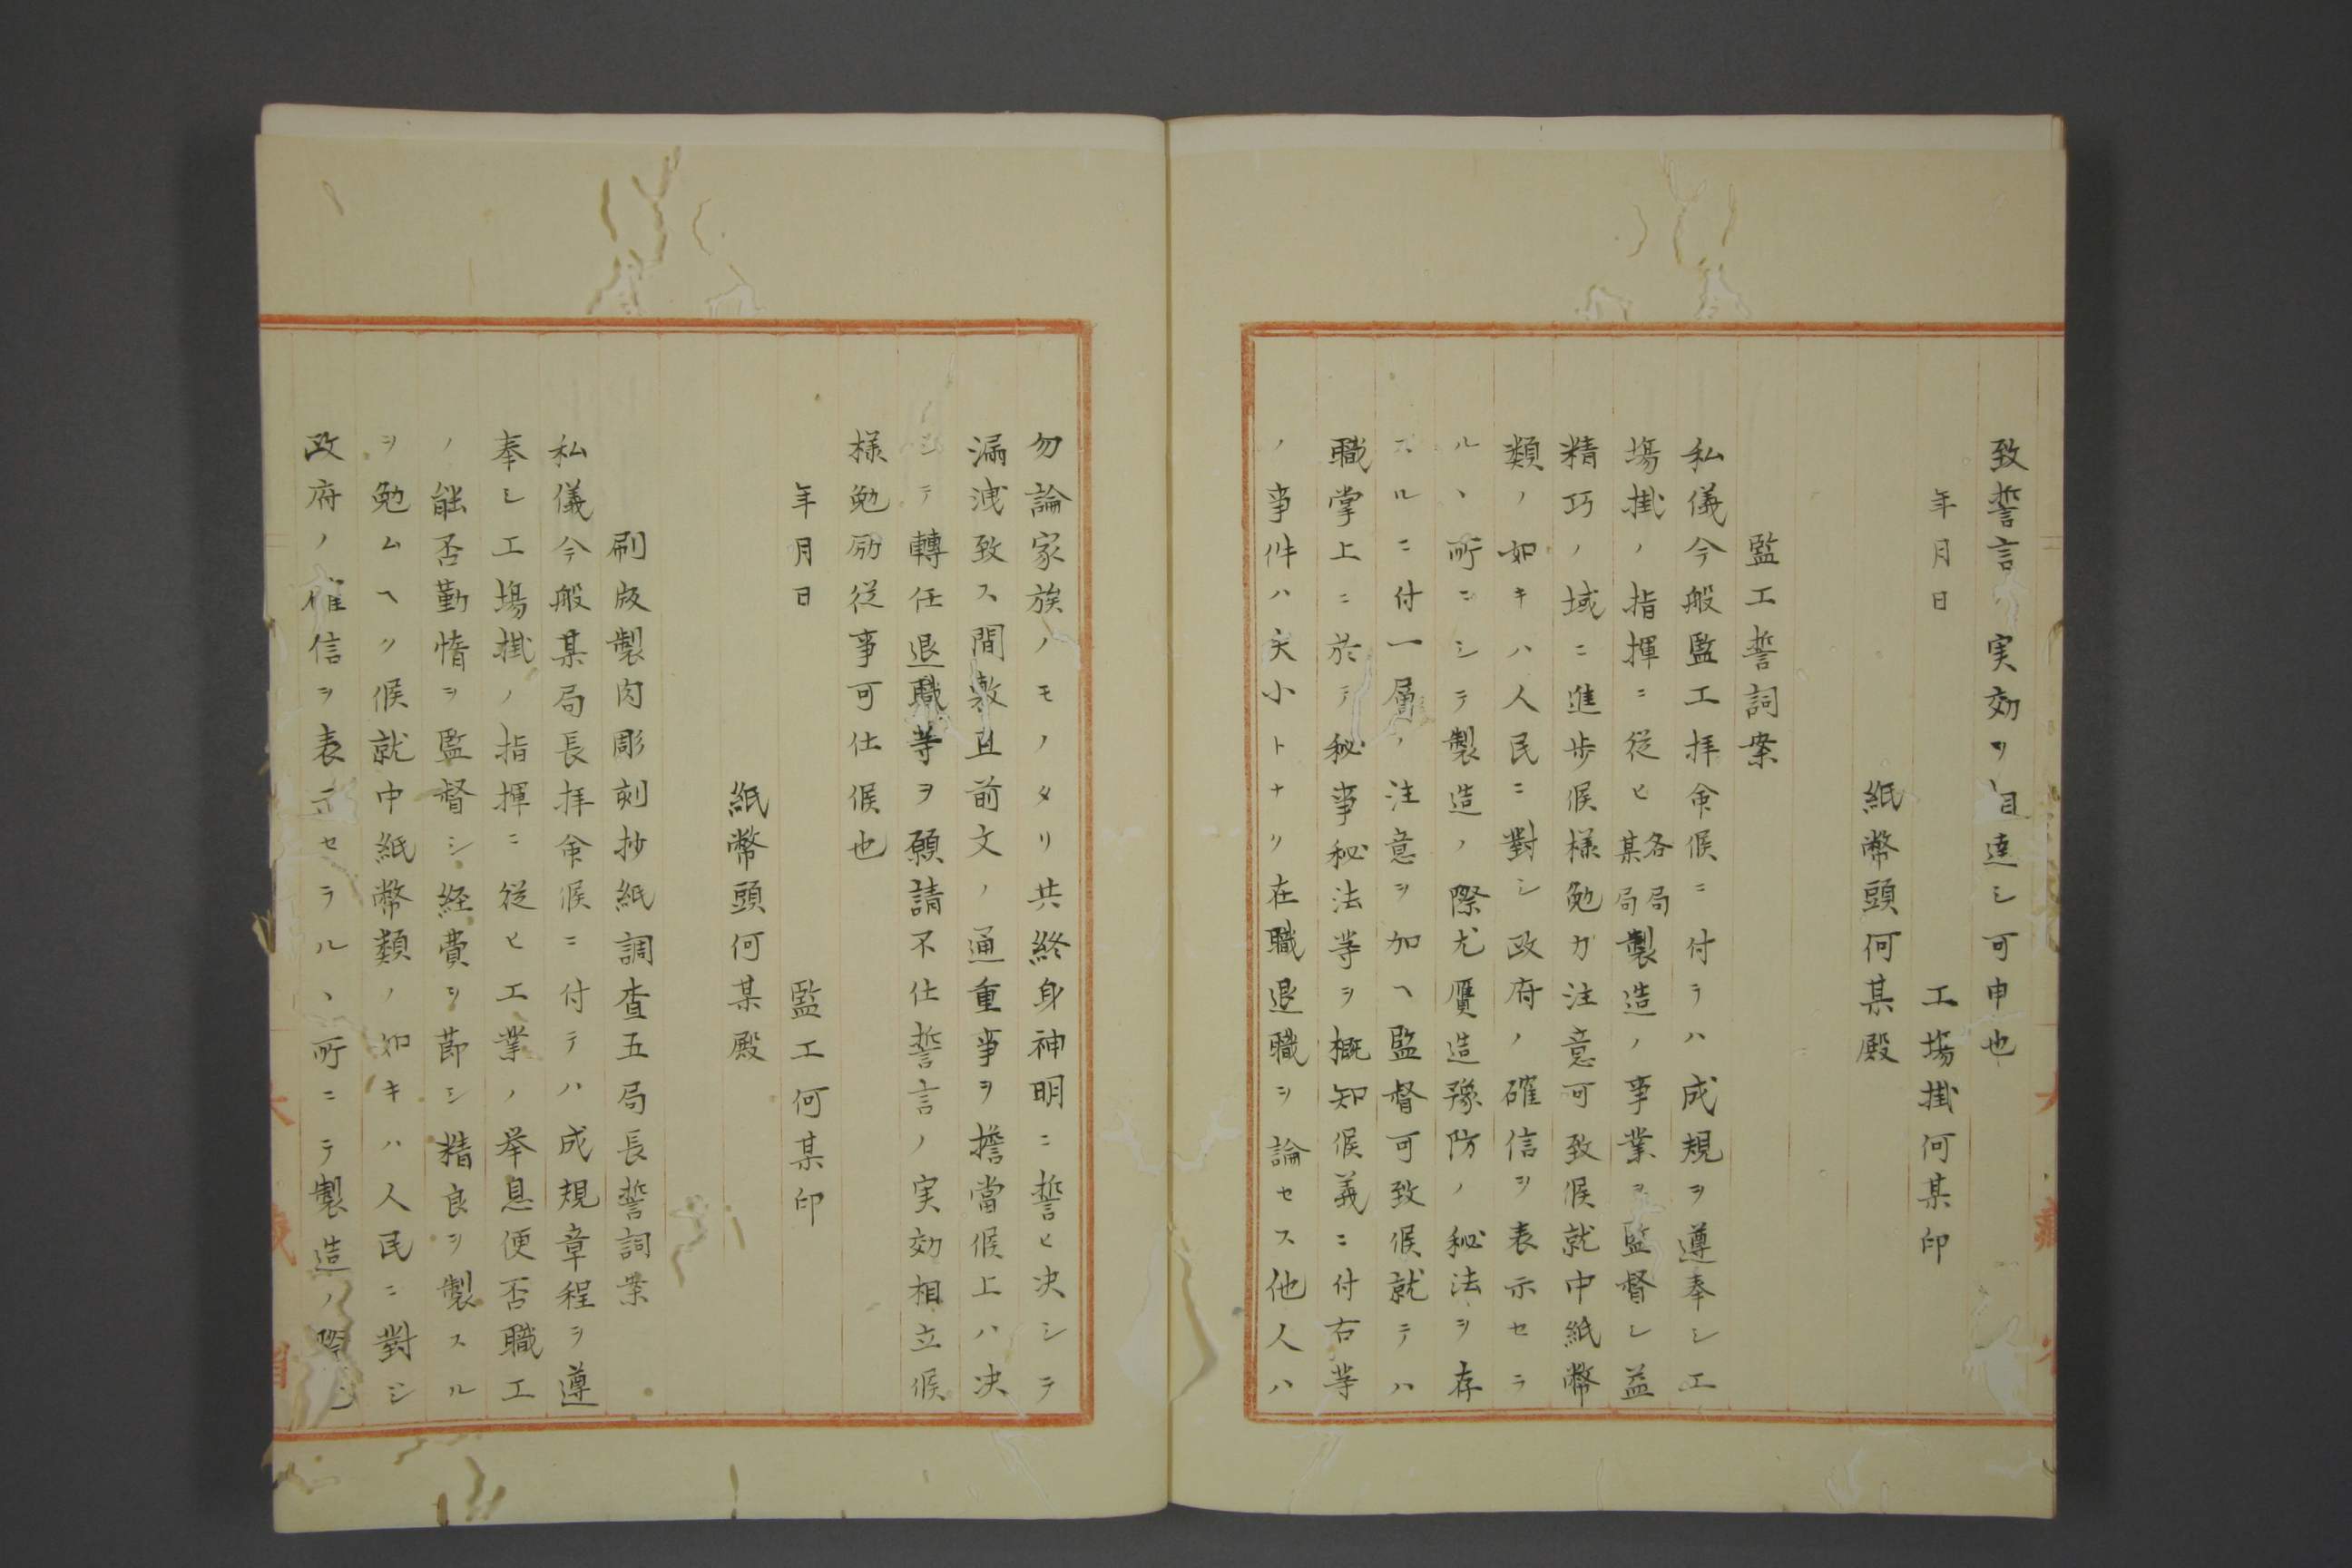 致誓言実効ヲ相達シ可申也
年月日
工場掛何某印
紙幣頭何某殿
監工誓詞案
私儀今般監工拝命候ニ付テハ成規ヲ遵奉シ工
場掛ノ指揮ニ従ヒ各局某局製造ノ事業ヲ監督シ益
精巧ノ域ニ進歩候様勉力注意可致候就中紙幣
類ノ如キハ人民ニ對シ政府ノ確信ヲ表示セラ
ルヽ所ニシテ製造ノ際尤贋造豫防ノ秘法ヲ存
スルニ付一層ノ注意ヲ加ヘ監督可致候就テハ
職掌上ニ於テ秘事秘法等ヲ概知候義ニ付右等
ノ事件ハ大小トナク在職退職ヲ論セス他人ハ
勿論家族ノモノタリ共終身神明ニ誓ヒ決シテ
漏洩致ス間敷且前文ノ通重事ヲ擔當候上ハ決
シテ轉任退職等ヲ願請不仕誓言ノ実効相立候
様勉励従事可仕候也
年月日
監工何某印
紙幣頭何某殿
刷版製肉彫刻抄紙調査五局長誓詞案
私儀今般某局長拝命候ニ付テハ成規章程ヲ遵
奉シ工場掛ノ指揮ニ従ヒ工業ノ挙息便否職工
ノ能否勤惰ヲ監督シ経費ヲ節シ精良ヲ製スル
ヲ勉ムヘク候就中紙幣類ノ如キハ人民ニ對シ
政府ノ確信ヲ表示セラルヽ所ニテ製造ノ際